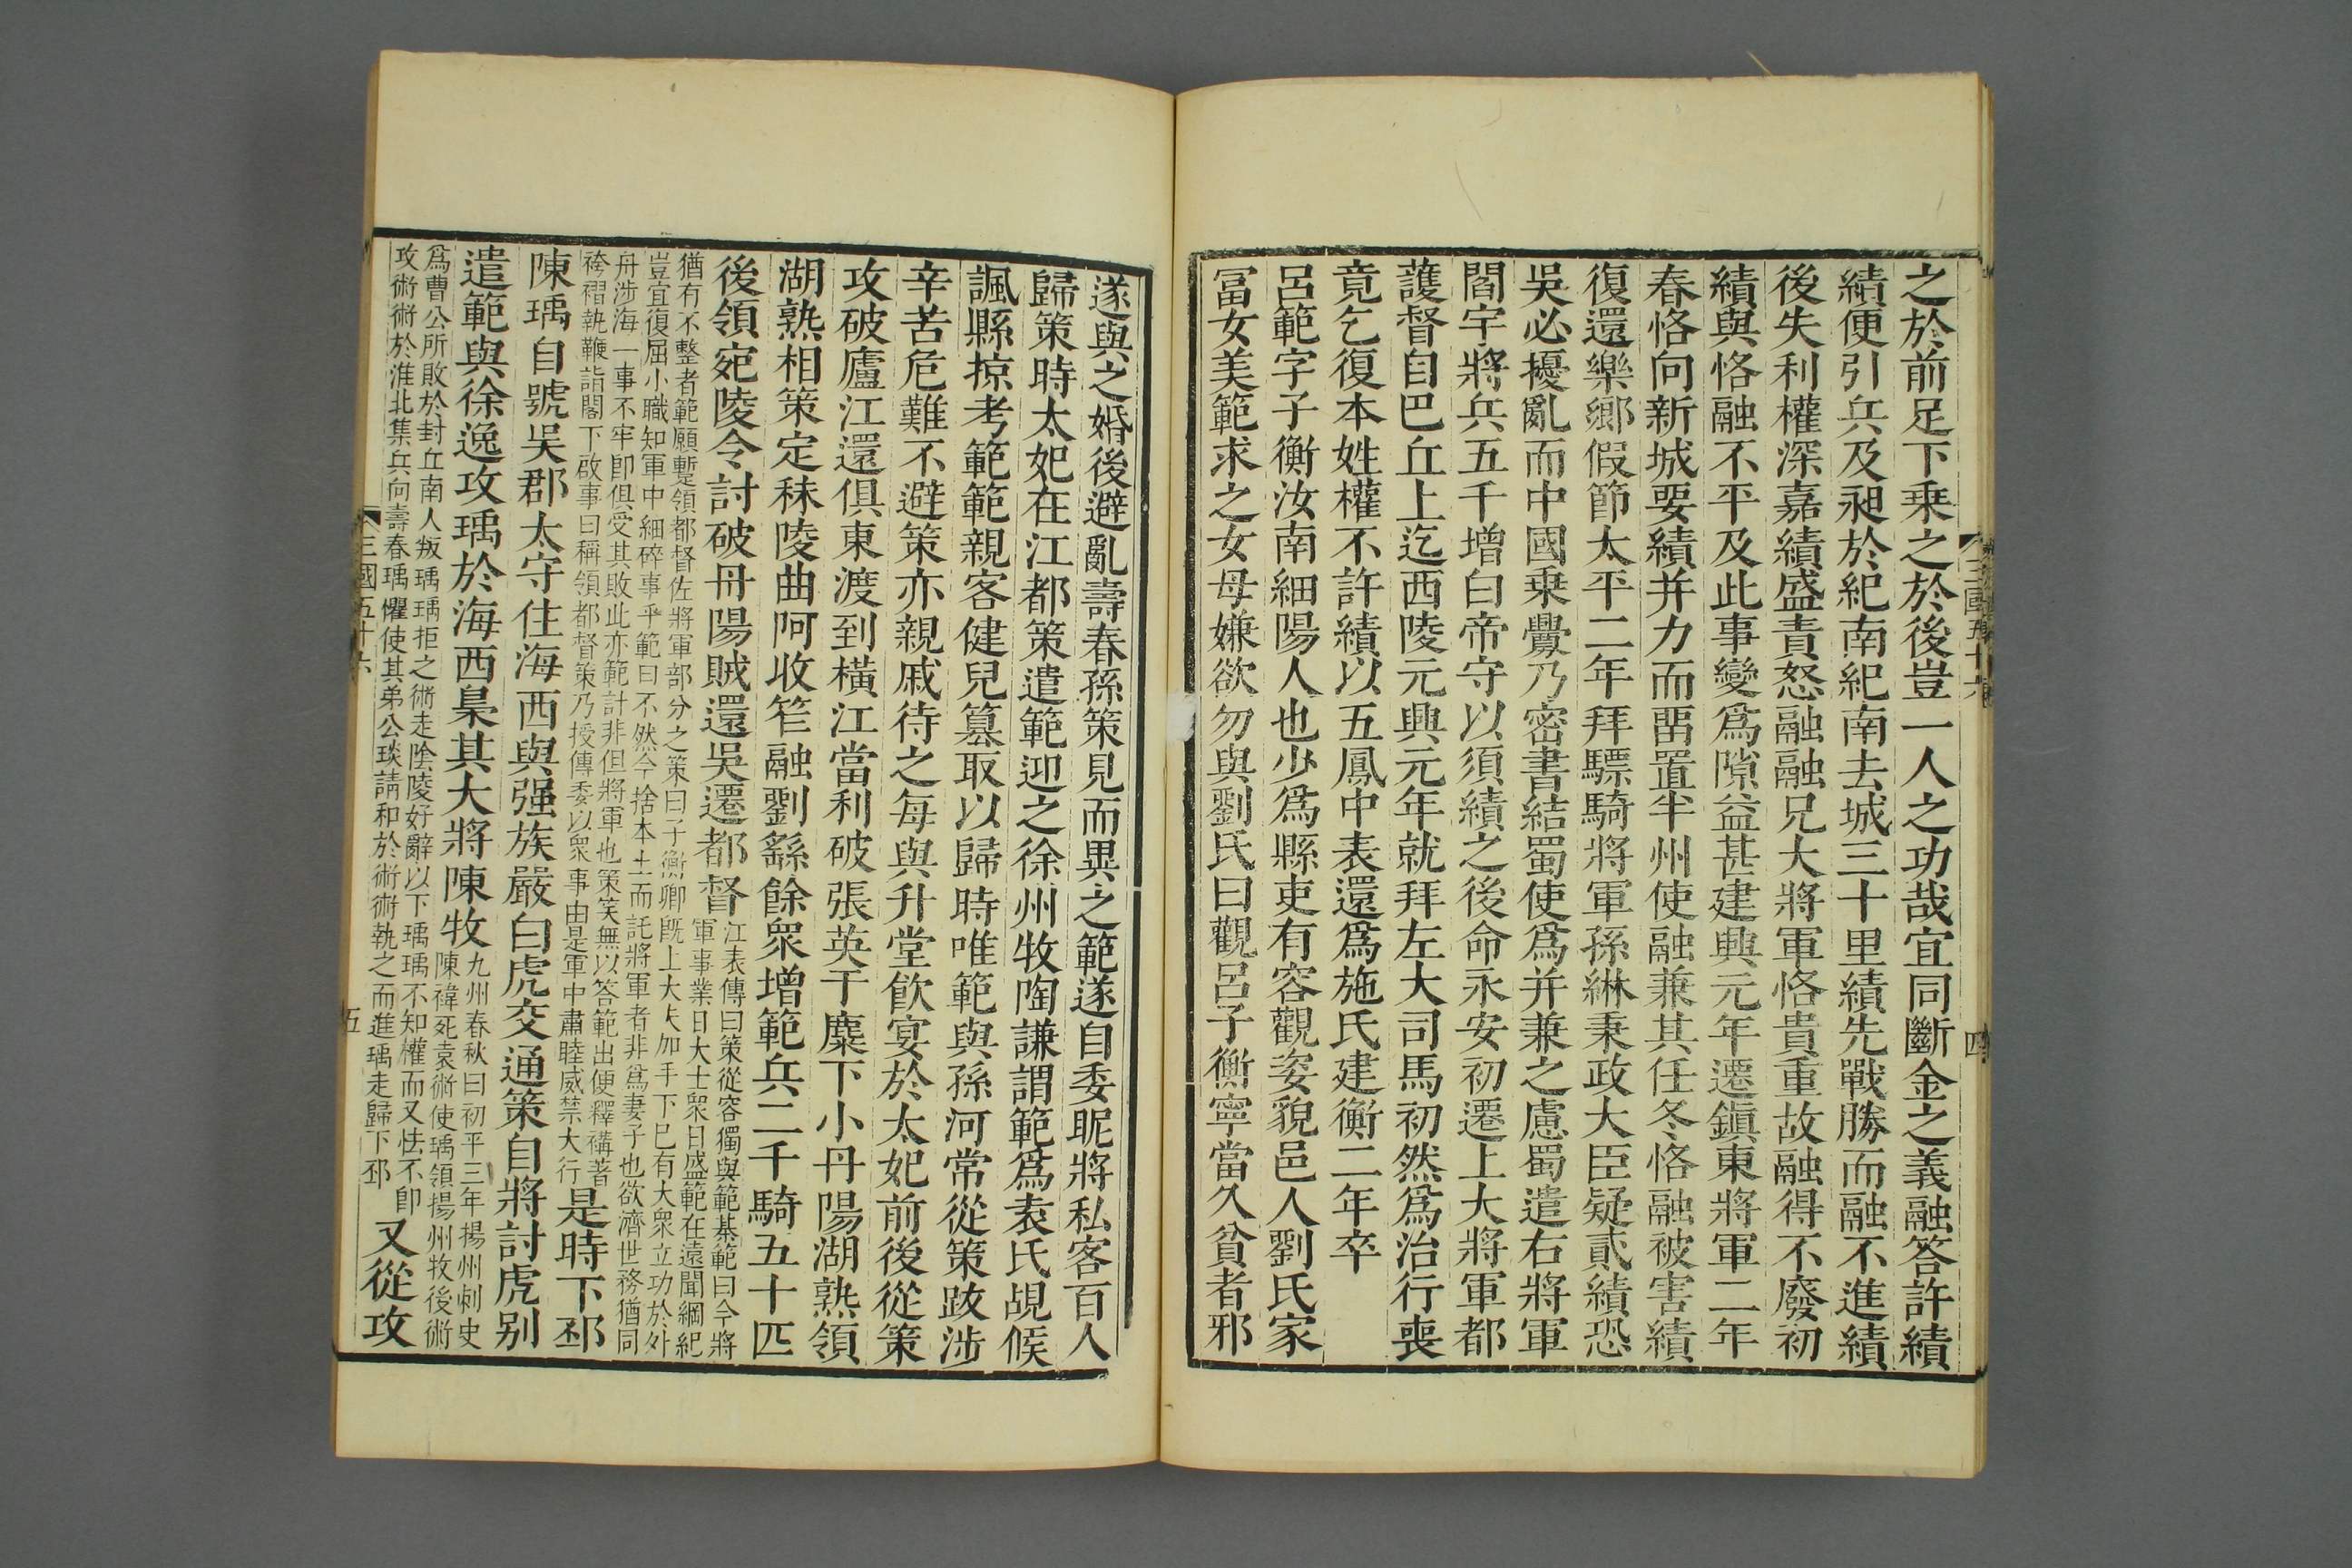 之於前足下乗之於後豈一人之功哉宜同斷金之義融答許績
績便引兵及昶於紀南紀南去城三十里績先戰勝而融不進績
後失利權深嘉績盛責怒融融兄大將軍恪貴重故融得不廢初
績與恪融不平及此事變爲隙益甚建興元年遷鎭東將軍二年
春恪向新城要績并力而畱置半州使融兼其任冬恪融被害績
復還樂鄉假節太平二年拜驃騎將軍孫綝秉政大臣疑貳績恐
吳必擾亂而中國乗釁乃密書結蜀使爲并兼之慮蜀遣右將軍
閻宇將兵五千增白帝守以須績之後命永安初遷上大將軍都
護督自巴丘上迄西陵元興元年就拜左大司馬初然爲治行喪
竟乞復本姓權不許績以五鳳中表還爲施氏建衡二年卒
呂範字子衡汝南細陽人也少爲縣吏有容觀姿貌邑人劉氏家
冨女美範求之女母嫌欲勿與劉氏曰觀呂子衡寧當久貧者邪
三國五十六
四
遂與之婚後避亂壽春孫策見而異之範遂自委昵將私客百人
歸策時太妃在江都策遣範迎之徐州牧陶謙謂範爲袁氏覘候
諷縣掠考範範親客健兒篡取以歸時唯範與孫河常從策跋涉
辛苦危難不避策亦親戚待之每與升堂飮宴於太妃前後從策
攻破廬江還俱東渡到橫江當利破張英于麋下小丹陽湖熟領
湖熟相策定秣陵曲阿收笮融劉繇餘衆增範兵二千騎五十匹
後領宛陵令討破丹陽賊還吳遷都督
江表傳曰策從容獨與範棊範曰今將
軍事業日大士衆日盛範在遠聞綱紀
猶有不整者範願蹔領都督佐將軍部分之策曰子衡卿旣上大夫加手下巳有大衆立功於外
豈宜復屈小職知軍中細碎事乎範曰不然今捨本土而託將軍者非爲妻子也欲濟世務猶同
舟涉海一事不牢卽俱受其敗此亦範計非但將軍也策笑無以答範出便釋褠著
袴褶執鞭詣閤下啟事曰稱領都督策乃授傳委以衆事由是軍中肅睦威禁大行
是時下邳
陳瑀自號吳郡太守住海西與强族嚴白虎交通策自將討虎别
遣範與徐逸攻瑀於海西梟其大將陳牧
九州春秋曰初平三年揚州刺史
陳禕死袁術使瑀領揚州牧後術
爲曹公所敗於封丘南人叛瑀瑀拒之術走陰陵好辭以下瑀瑀不知權而又怯不卽
攻術術於淮北集兵向壽春瑀懼使其弟公琰請和於術術執之而進瑀走歸下邳
又從攻
三國五十六
五